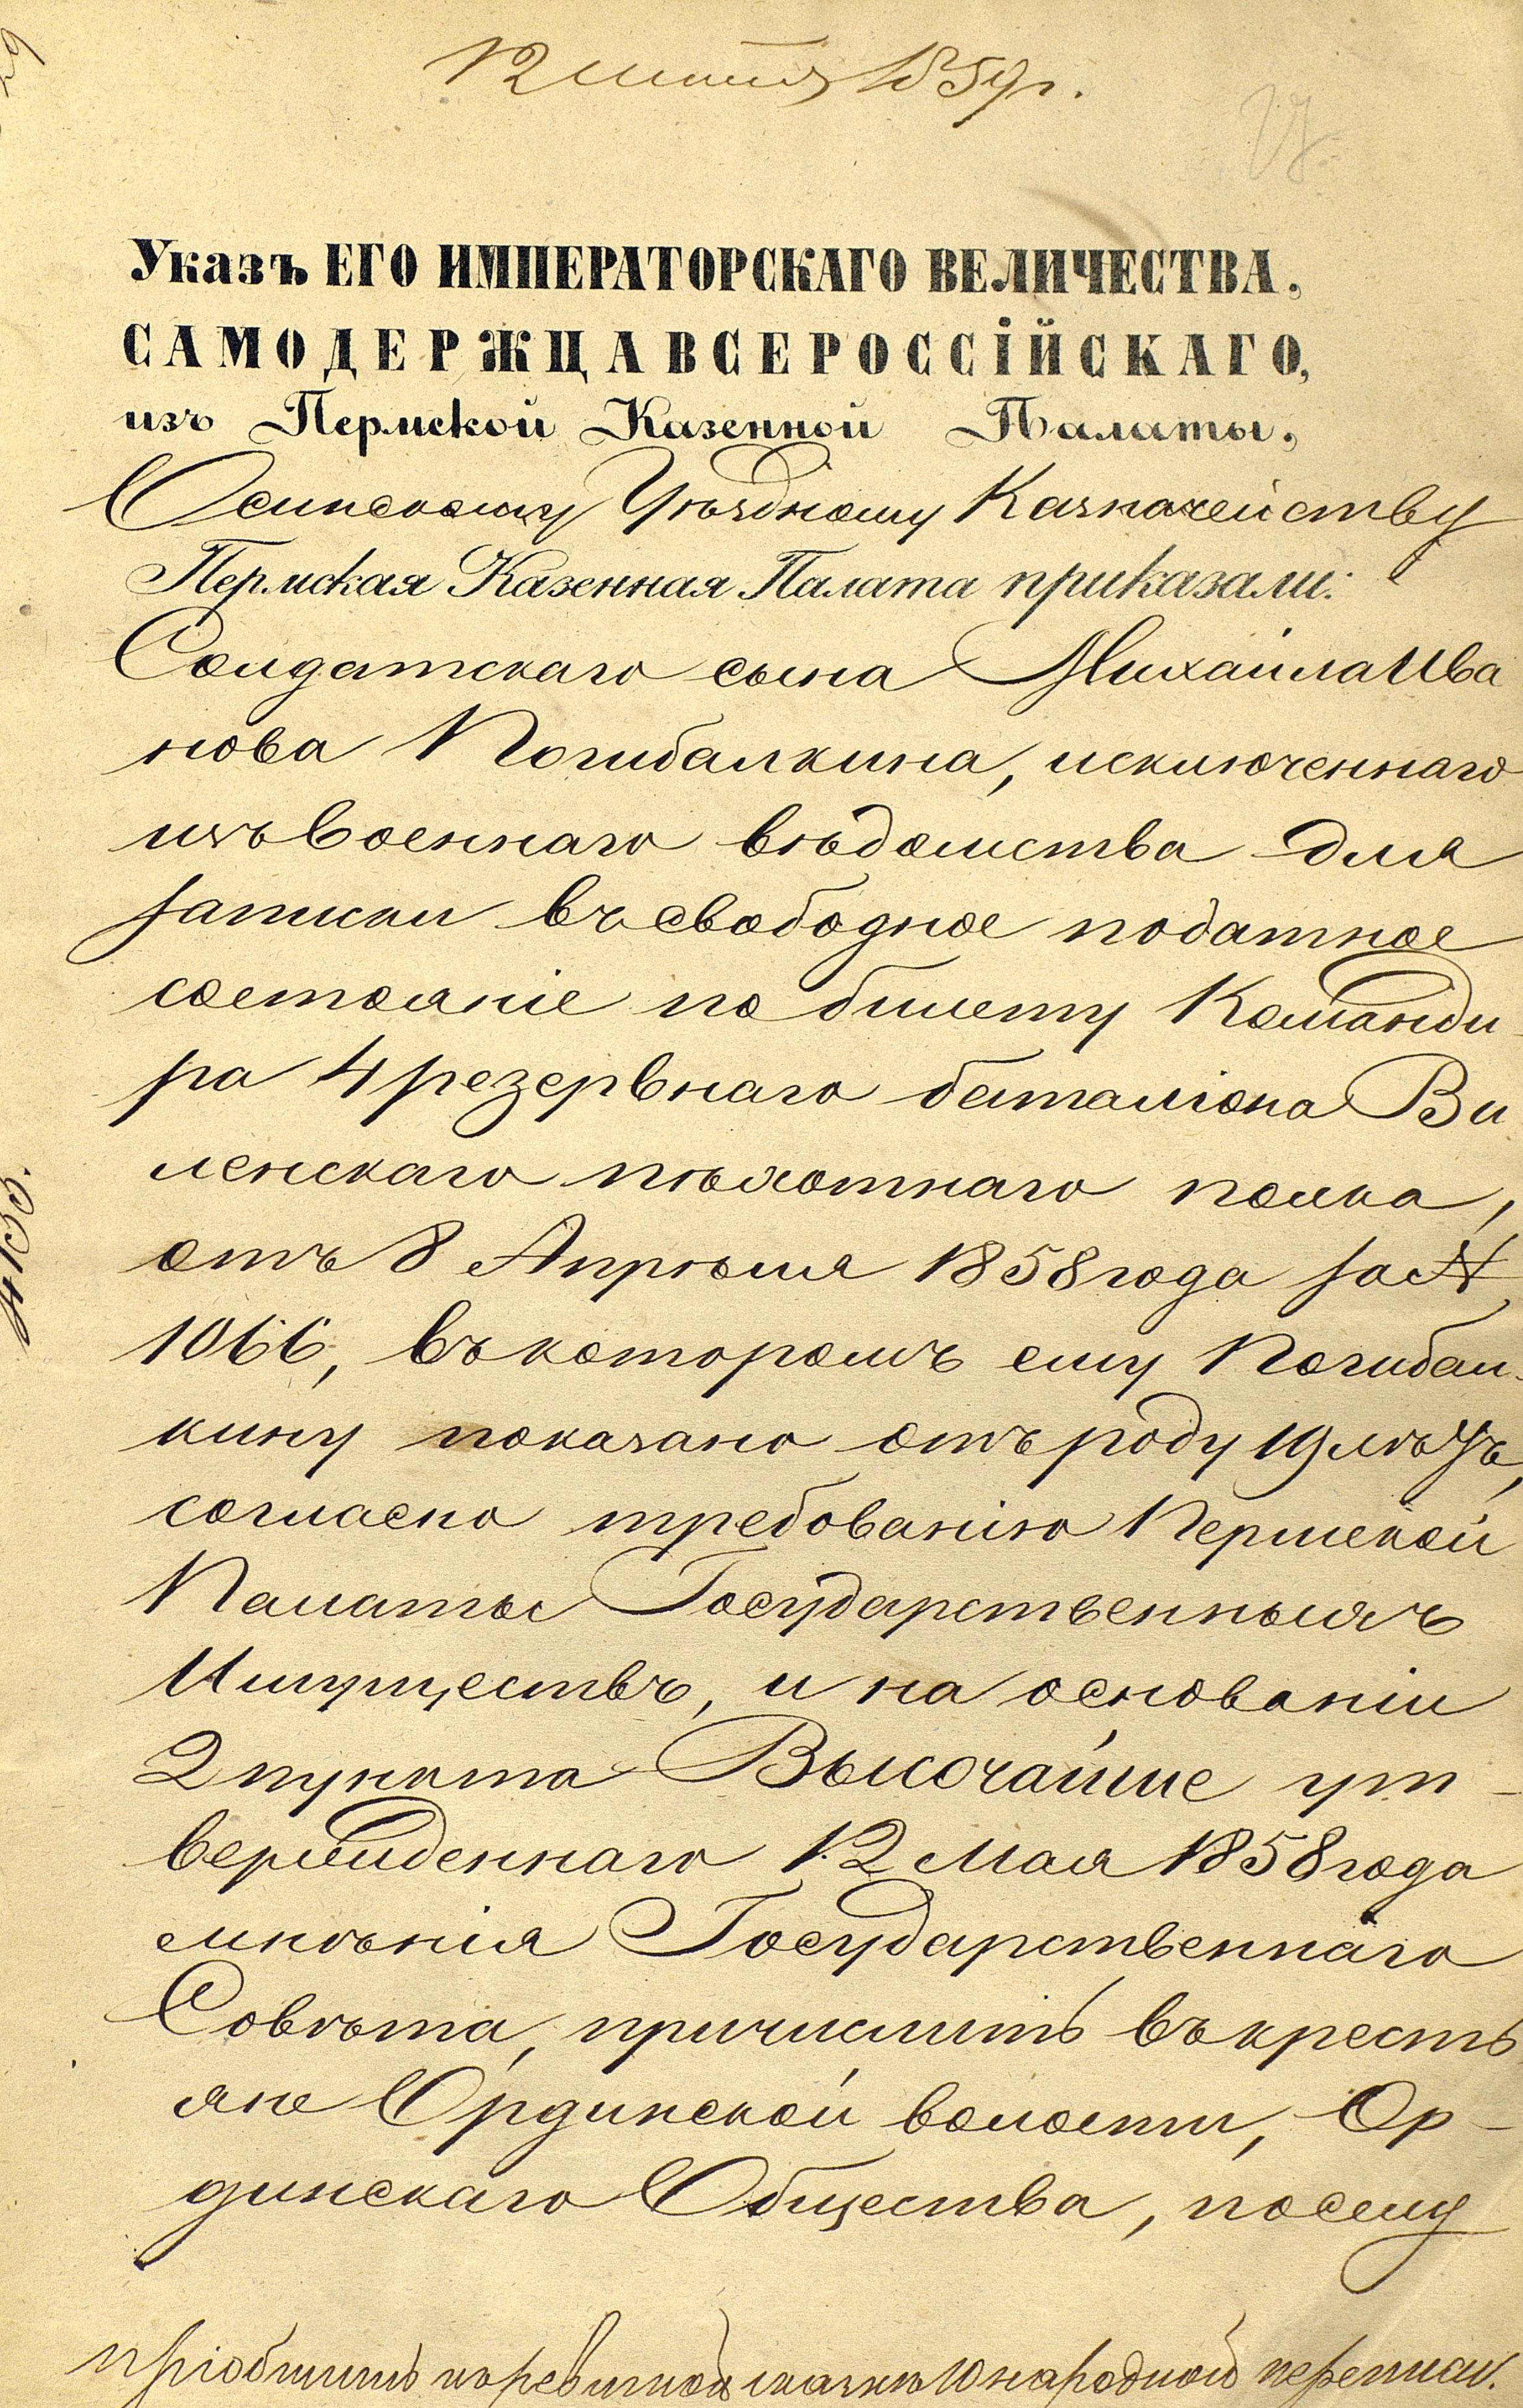 12 Іюня 1859 г.
Указъ ЕГО ИМПЕРАТОРСКАГО ВЕЛИЧЕСТВА,
САМОДЕРЖЦА ВСЕРОССІЙСКАГО,
изъ Пермской Казенной Палаты,
Осинскому Уѣздному Казначейству
Пермская Казенная Палата приказали:
Солдатскаго сына Михаила Ива
нова Погибалкина, исключеннаго
изъ военнаго вѣдомства для
записки въ свободное податное
состояніе по билету Команди-
ра 4 резервнаго баталіона Ви
ленскаго пѣхотнаго полка,
отъ 8 Апрѣля 1858 года за №
1066, въ которомъ ему Погибал-
кину показано отъ роду 19 лѣтъ,
согласно требованію Пермской
Палаты Государственныхъ
Имуществъ, и на основаніи
2 пункта Высочайше ут-
вержденнаго 12 Мая 1858 года
мнѣнія Государственнаго
Совѣта, причислить въ кресть
яне Ординской волости, Ор-
динскаго Общества, посему
пріобщить къ ревизкой сказкѣ 10 народной переписи.
4133.